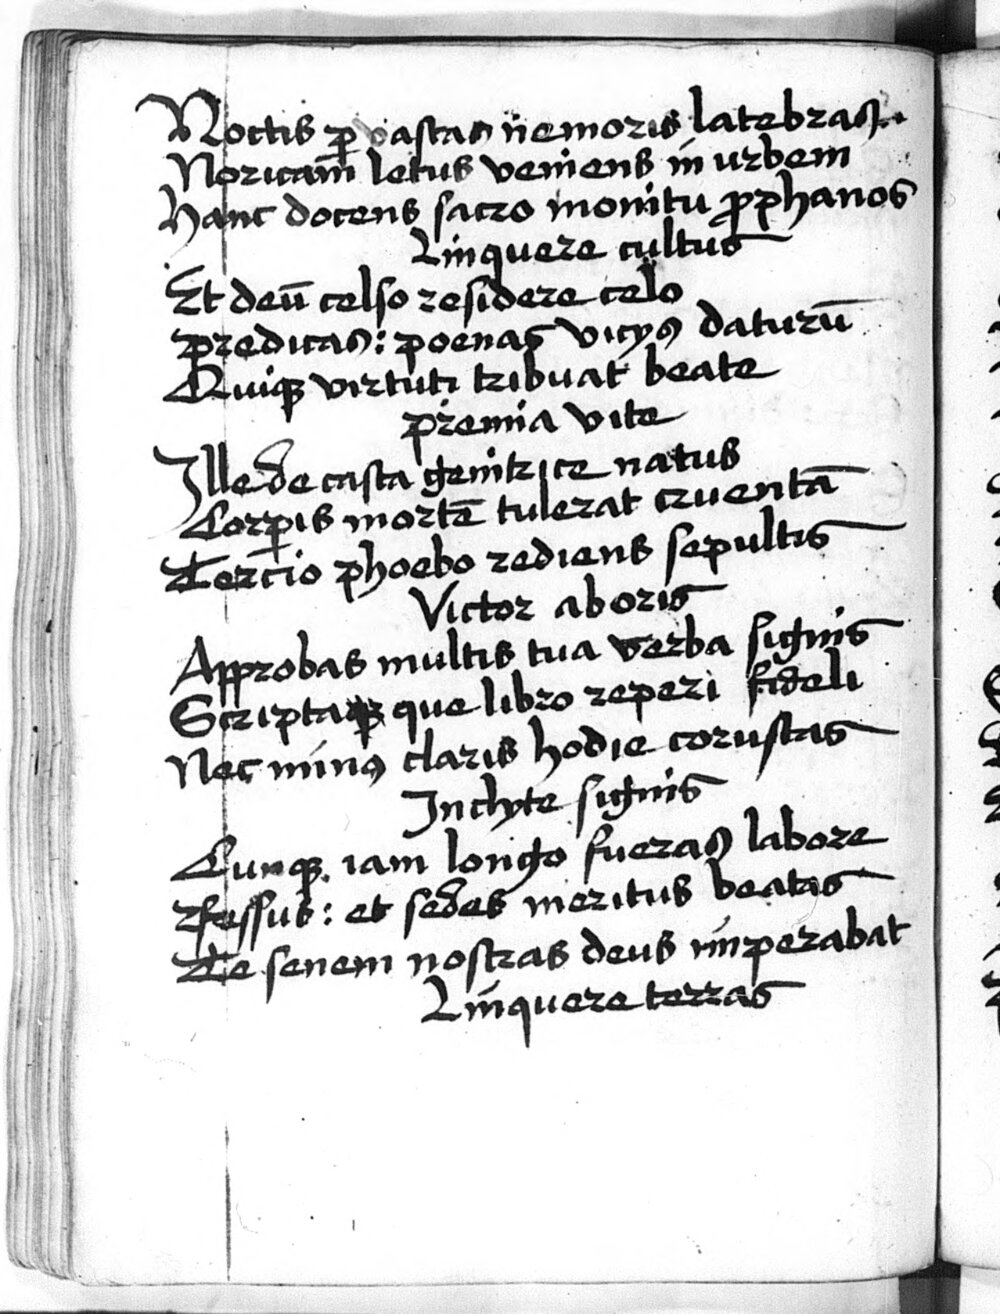 Noctis ꝑ vastas nemoris latebras.
Noricam̄ letus veniens in urbem
Hanc docens sacro monitu ꝓphanos
Linquere cultus
Et deū celso residere celo
predicas: poenas vicijs daturū
Quiqꝫ virtuti tribuat beate
premia vite
Ille de casta genitrice natus
Corꝑis mortē tulerat cruentā
Tercio phoebo rediens sepultis
Victor ab oris
Approbas multis tua verba signis
Scripta que libro reperi fideli
Nec minus claris hodie coruscas
Inclyte signis
Cunqꝫ iam longo fueras labore
fessus: et sedes meritus beatas
Te senem nostras deus imperabat
Linquere terras